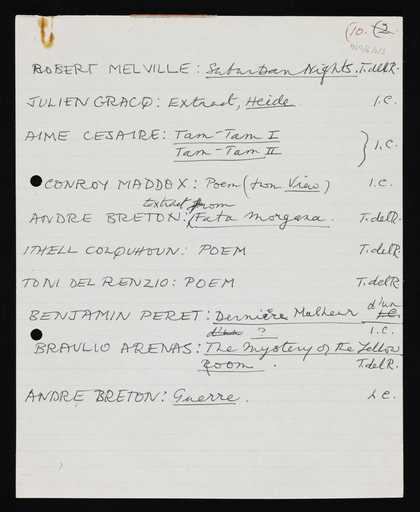 (10. (2.
ROBERT MELVILLE: Suburban Nights. T.delR.
JULIEN GRACQ: Extract, Heide. I.C.
AIME CESAIRE: Tam-Tam I
Tam-Tam II } I.C.
CONROY MADDOX: Poem (from View) I.C.
Extract from
ANDRE BRETON: (Fata Morgana. T.delR.
ITHELL COLQUHOUN: POEM T.delR.
TONI DEL RENZIO: POEM T.delR
BENJAMIN PERET: Dernière Malheur d'un
? I.C.
BRAULIO ARENAS: The Mystery of the Yellow
Room. T.delR.
ANDRE BRETON: Guerre. I.C.